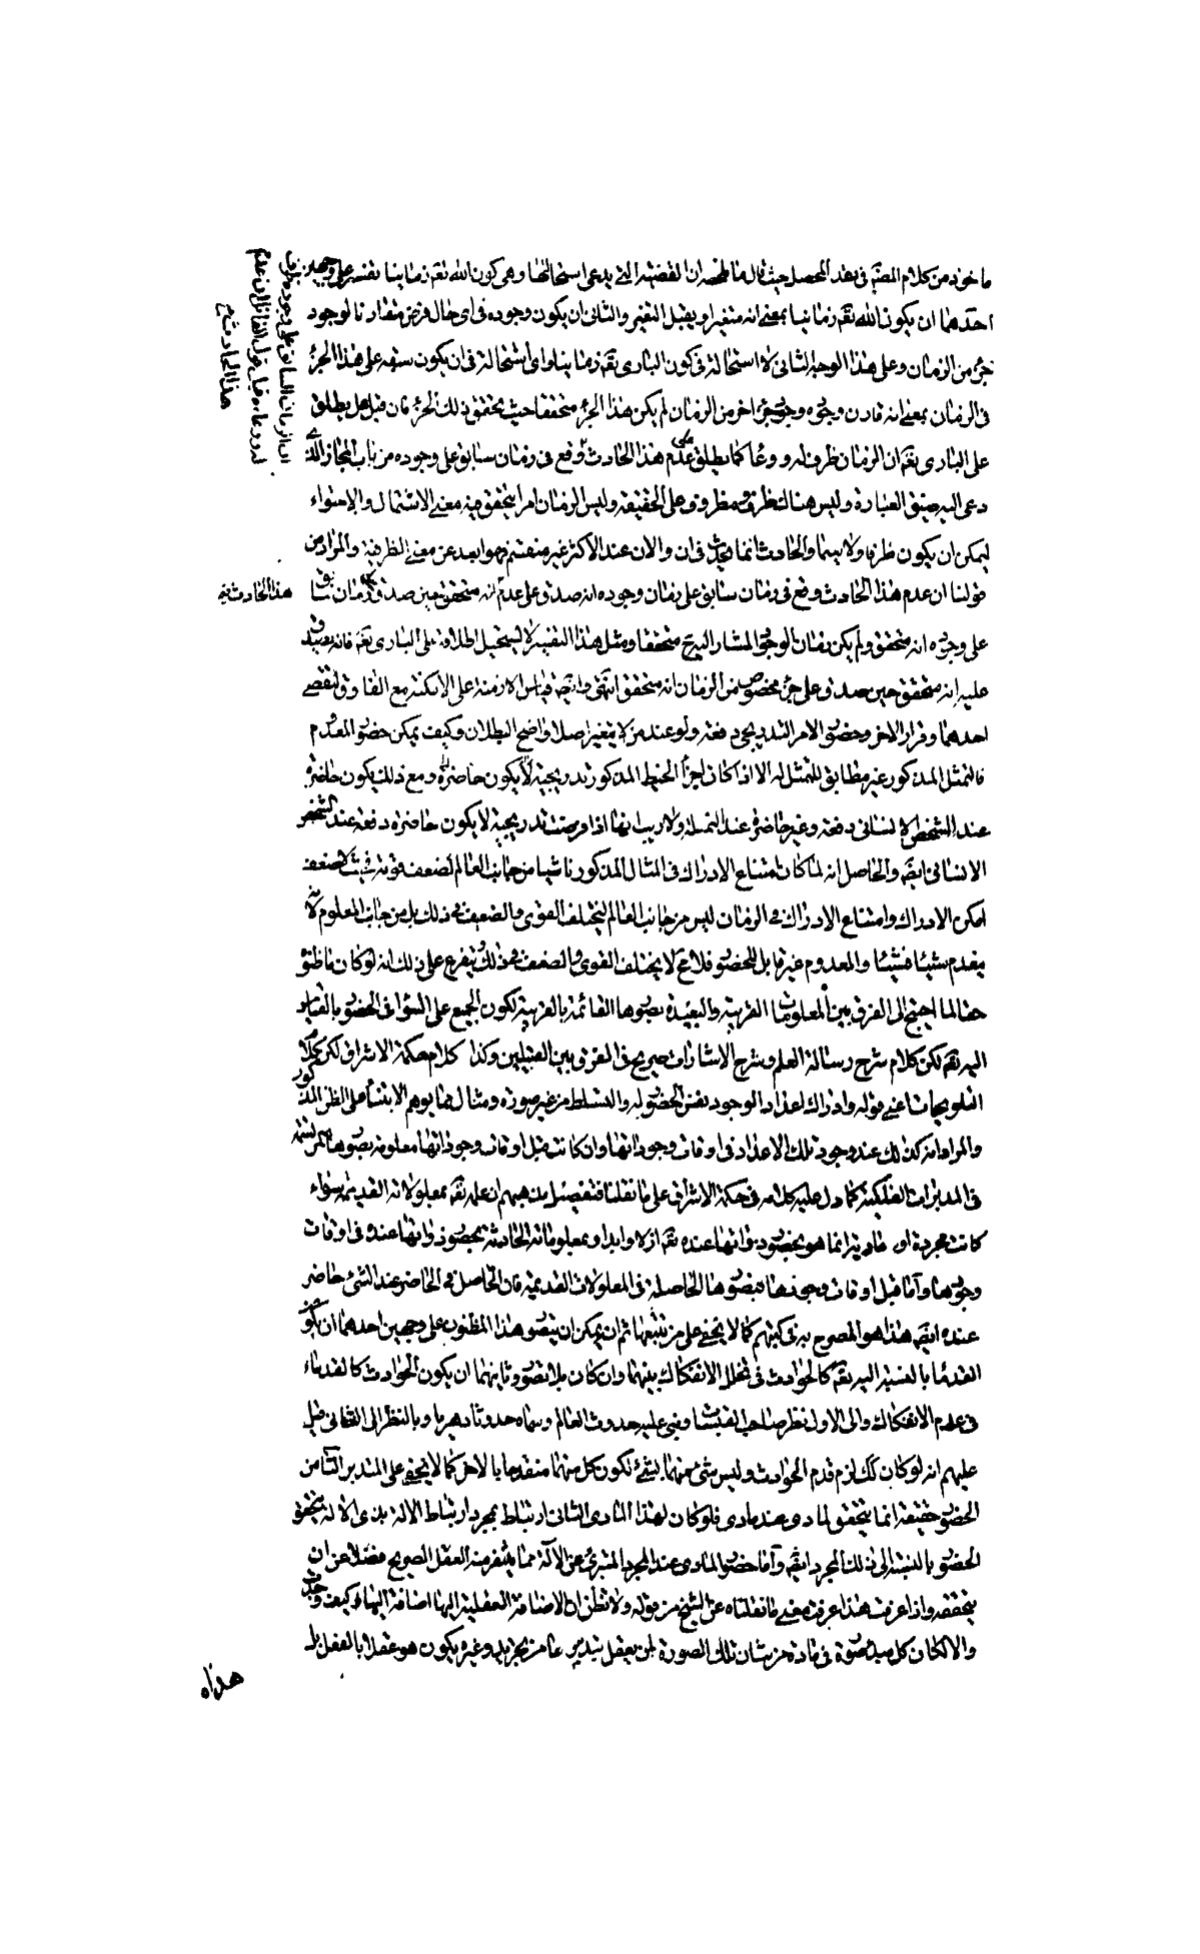 ماخوذ من كلام المصنف فى نقد المحصل حيث قال ما ملخصه ان القضية التى يدعى استحالتها وهى كون الله تعم زمانيا يفسر على وجهين
احدهما ان يكون الله تعم زمانيا بمعنى انه متغير او يقبل التغير والثانى ان يكون وجوده فى اى حال فرض مقارنا لوجود
جزء من الزمان وعلى هذا الوجه الثانى لا استحالة فى كون البارى تعم زمانيا واى استحالة فى ان يكون سبقه على هذا الجزء
فى الزمان بمعنى انه قارن وجوده وجود جزء اخر من الزمان لم يكن هذا الجزء متحققا حيث يتحقق ذلك الجزء فان قيل هل يطلق
على البارى تعم ان الزمان ظرف له ووعا كما يطلق على عدم هذا الحادث وقع فى زمان سابق على وجوده من باب المجاز الذى
دعى اليه ضيق العبارة وليس هناك ظرف ومظروف على الحقيقة وليس الزمان امرا يتحقق فيه معنى الاشتمال والاحتواء
ليمكن ان يكون ظرفا ولا سيما والحادث انما يحدث فى ان والان عند الاكثر غير منقسم فهو ابعد عن معنى الظرفية والمراد من
قولنا ان عدم هذا الحادث وقع فى زمان سابق على زمان وجوده انه صدق على عدم انه متحقق حين صدق زمان سابق
هذا الحادث فيه
على وجوده انه متحقق ولم يكن زمان الوجود المشار اليه ح متحققا ومثل هذا التفسير لا يستحيل اطلاقه على البارى تعم فانه يصدق
عليه انه متحقق حين صدق على جزء مخصوص من الزمان انه متحقق انتهى وايضا قياس الازمنة على الامكنة مع الفارق لتقضى
احدهما وقرار الاخر وحضور الامر التدريجى دفعة ولو عند من لا يتغير اصلا واضح البطلان وكيف يمكن حضور المعدوم
فالتمثل المذكور غير مطابق للتمثل له الا اذا كان اجزأ الخيط المذكور تدريجية لا يكون حاضرة ومع ذلك يكون حاضرة
عند الشخص الانسانى دفعة وغير حاضرة عند النملة ولا ريب انها اذا فرضت تدريجية لا يكون حاضرة دفعة عند الشخص
الانسانى ايضا والحاصل انه لما كان امتناع الادراك فى المثال المذكور ناشيا من جانب العالم لضعف قوته فحيث لا ضعف
امكن الادراك وامتناع الادراك فى الزمان ليس من جانب العالم ليختلف القوى والضعيف فى ذلك بل من جانب المعلوم لانه
ينعدم شيئا فشيئا والمعدوم غير قابل للحضور فلاجرم لا يختلف القوى والضعيف فى ذلك ويتفرع على ذلك انه لو كان ما ظنوه
حقا لما احتيج الى الفرق بين المعلومات القريبة والبعيدة بصورها القائمة بالقريبة لكون الجميع على السواء فى الحضور بالقياس
اليه تعم لكن كلام شرح رسالة العلم وشرح الاشارات صريح فى الفرق بين القبيلين وكذا كلام حكمة الاشراق لكن كلام
التلويحات اعنى قوله وادراك اعداد الوجود بنفس الحضور له والتسلط من غير صورة ومثال مما يوهم الابتناء على الظن المذكور
والمراد انه كذلك عند وجود تلك الاعداد فى اوقات وجوداتها وان كانت قبل اوقات وجوداتها معلومة بصورها المرتسمة
فى المدبرات الفلكية كما دل عليه كلامه فى حكمة الاشراق على ما نقلنا فتفصيل مذهبهم ان علمه تعم بمعلولاته القديمة سواء
كانت مجردة او مادية انما هو بحضور ذواتها عنده تعم ازلا وابدا وبمعلولاته الحادثة بحضور ذواتها عنده فى اوقات
وجودها واما قبل اوقات وجودها فبصورها الحاصلة فى المعلولات القديمة فان الحاصل فى الحاضر عند الشئ حاضر
عنده ايضا هذا هو المصرح به فى كتبهم كما لا يخفى على من تتبعها ثم ان يمكن ان يتصور هذا المظنون على وجهين احدهما ان يكون
القدماء بالنسبة اليه تعم كالحوادث فى تخلل الانفكاك بينهما وان كان بلا تصور وثانيهما ان يكون الحوادث كالقدماء
فى عدم الانفكاك والى الاول نظر صاحب القبسات وبنى عليه حدوث العالم وسماه حدوثا دهريا وبالنظر الى الثانى قيل
عليهم انه لو كان كك لزم قدم الحوادث وليس شئ منهما بشئ لكون كل منهما منقدحا بالاخر كما لا يخفى على المتدبر الثامن
الحضور حقيقة انما يتحقق لمادى عند مادى فلو كان لهذا المادى الثانى ارتباط بمجرد ارتباط الالة بذى الالة يتحقق
الحضور بالنسبة الى ذلك المجرد ايضا واما حضور المادى عند المجرد المتبرئ عن الالة مما يتنفر منه العقل الصريح فضلا عن ان
يتحققه واذا عرفت هذا عرفت معنى ما نقلناه عن الشيخ من قوله ولا تظن ان الاضافة العقلية اليها اضافة اليها كيف وجدت
والا لكان كل مبدء صورة فى مادة من شان تلك الصورة ان يعقل بتدبير ما من تجريد وغيره يكون هو عقلا بالفعل بل
هذه